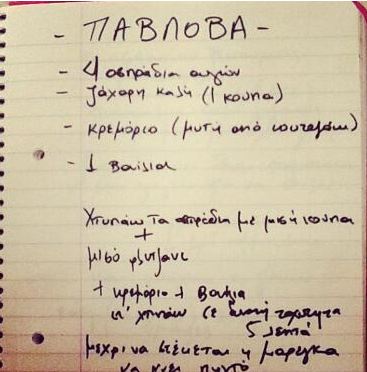 - ΠΑΒΛΟΒΑ -
- 4 ασπράδια αυγών
- ζάχαρη καλή (1 κούπα)
- κρεμόριο (μυτή από κουταλάκι)
- 1 βανίλια
Χτυπάω τα ασπράδια με μισή κούπα
+
μισό φλυτζάνι
+ κρεμόριο + βανίλια
κ' χτυπάω σε δυνατή ταχύτητα
5 λεπτά
μέχρι να στέκεται η μαρέγκα
να γίνει πυκνό